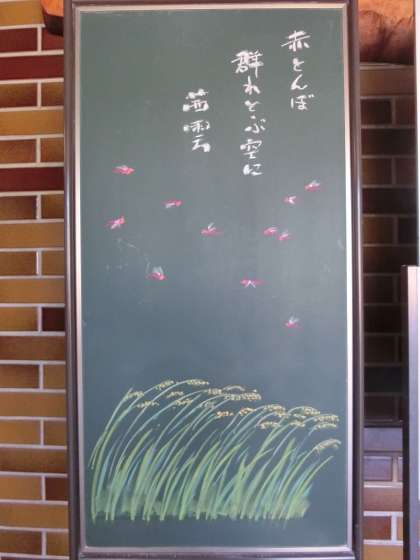 赤とんぼ
群れとぶ空に
茜雲